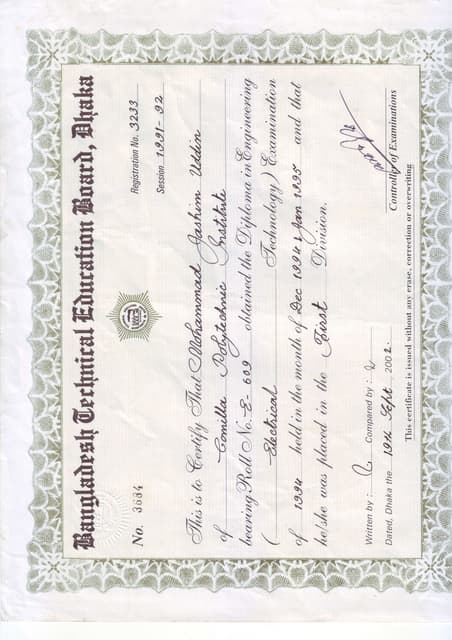 Bangladesh Technical Education Board, Dhaka
No. 3684
Registration No. 3233
Session 1991-92
This is to Certify That Mohammad Jashim Uddin
of Comilla Polytechnic Institute
bearing Roll No. E-609 obtained the Diploma in Engineering
( Electrical Technology) Examination
of 1994 held in the month of Dec 1994 & Jan 1995 and that
he/she was placed in the First Division.
Written by :
Compared by :
Dated, Dhaka the 19th Sept 2002.
Controller of Examinations
This certificate is issued without any erase, correction or overwriting